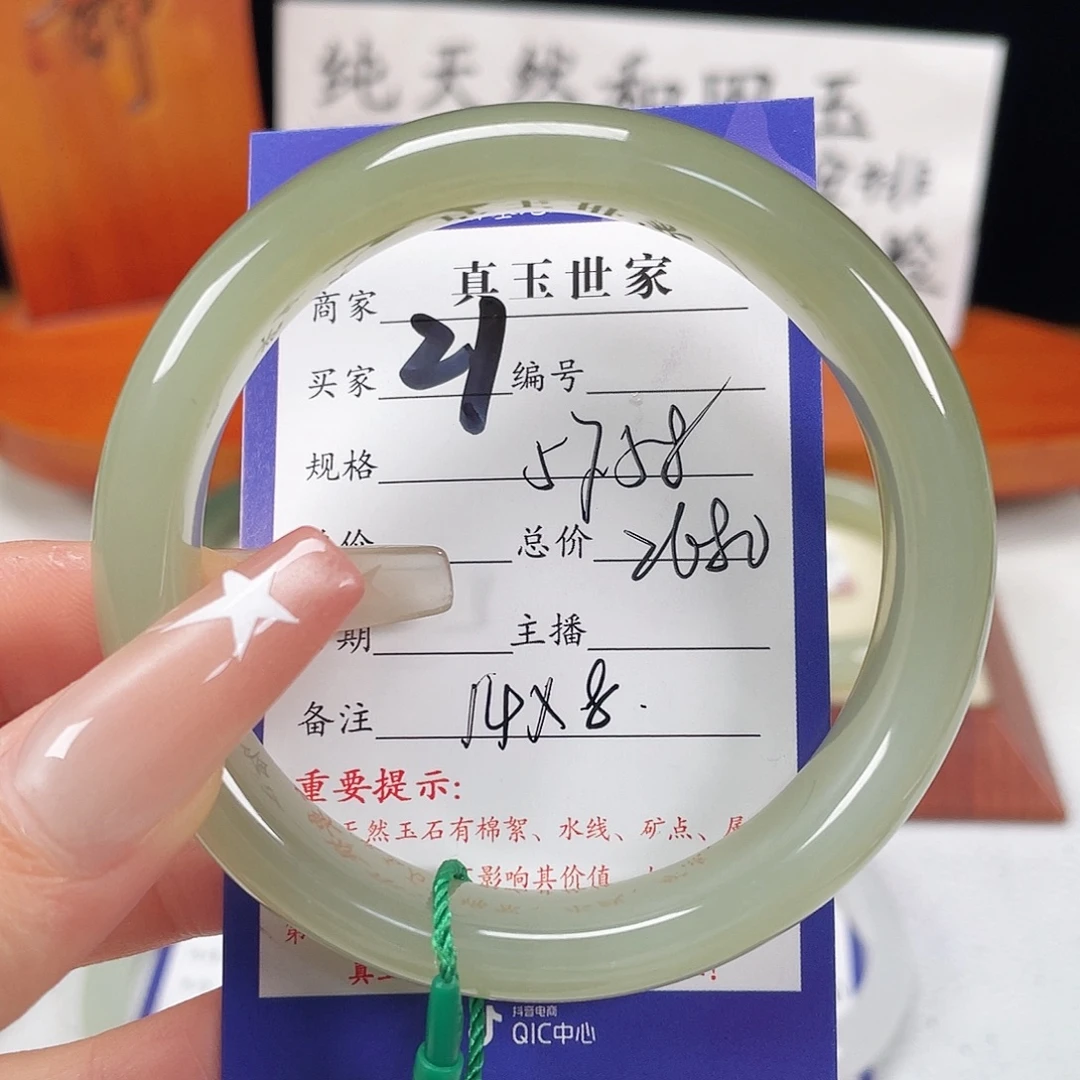 纯天然和田玉
真玉世家
商家
买家 21 编号
规格 57.58
价 总价 2680
期 主播
备注 14X8.
重要提示:
天然玉石有棉絮、水线、矿点、
影响其价值
第
真
抖音电商
QIC中心